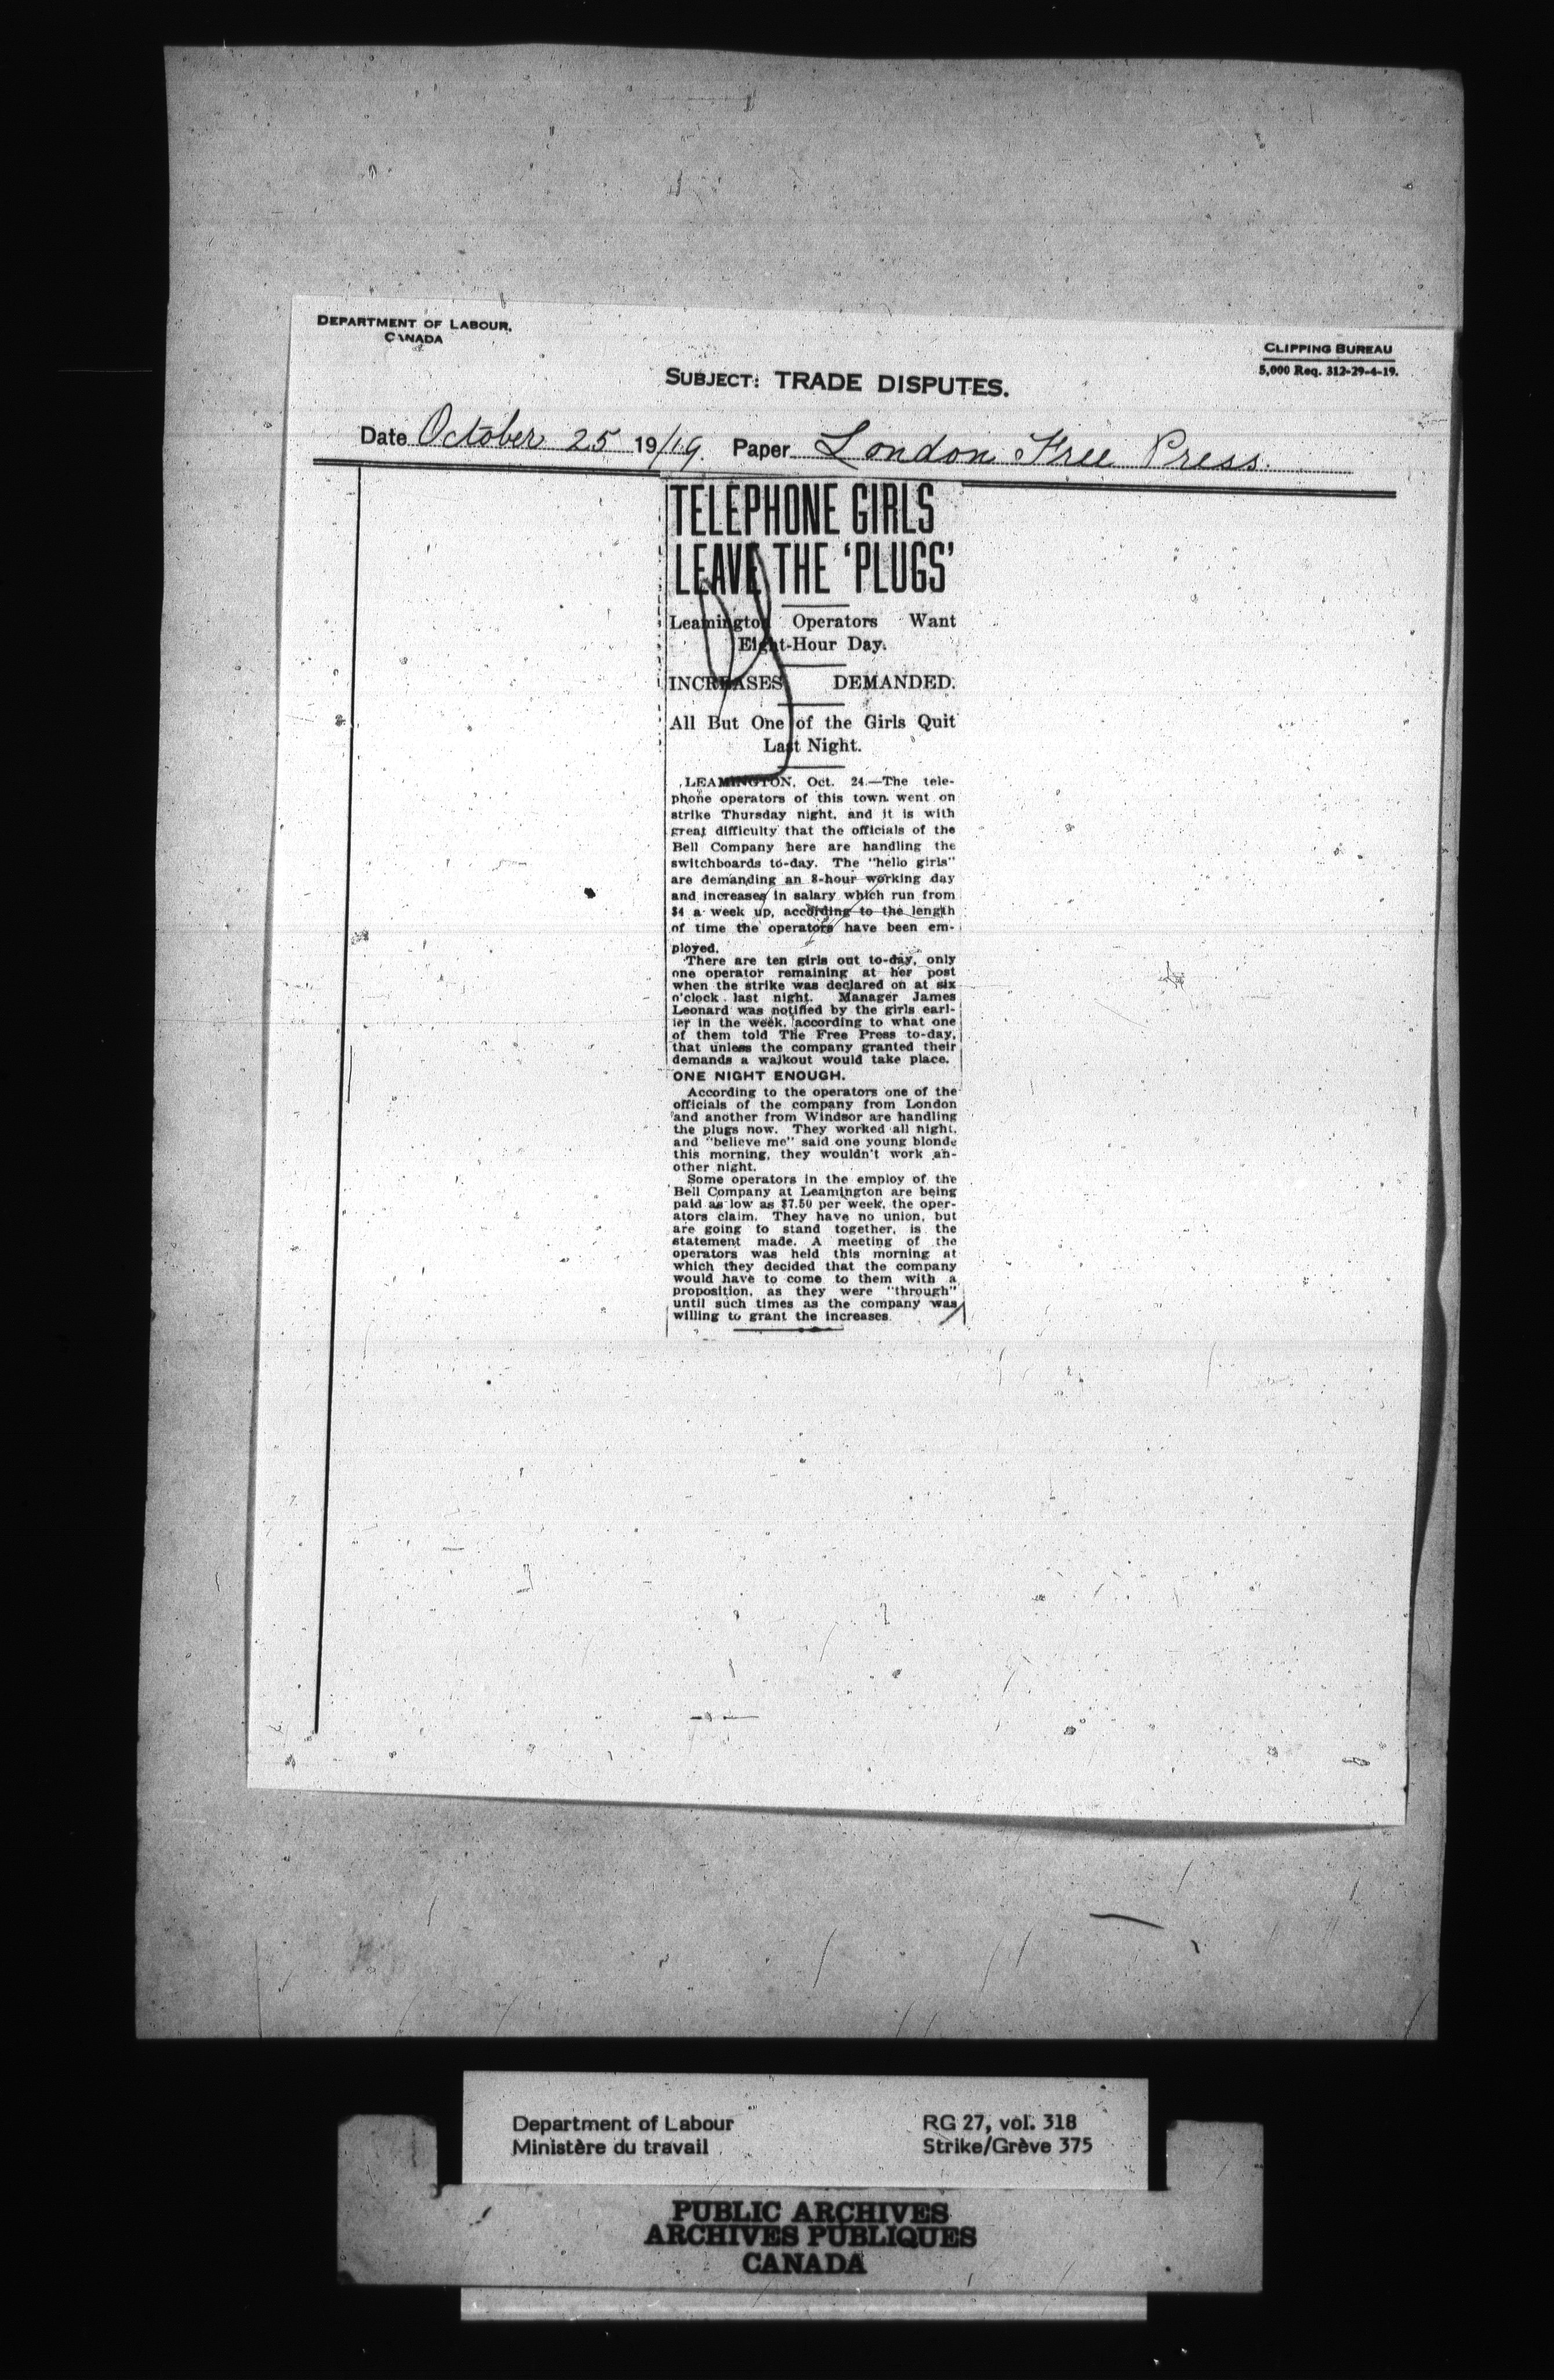 DEPARTMENT OF LABOUR,
CANADA
CLIPPING BUREAU
5,000 Req. 312-29-4-19.
SUBJECT: TRADE DISPUTES.
Date October 25 19/19. Paper London Free Press.
TELEPHONE GIRLS
LEAVE THE 'PLUGS'
Leamington Operators Want
Eight-Hour Day.
INCREASES DEMANDED.
All But One of the Girls Quit
Last Night.
LEAMINGTON, Oct. 24.—The tele-
phone operators of this town went on
strike Thursday night, and it is with
great difficulty that the officials of the
Bell Company here are handling the
switchboards to-day. The "hello girls"
are demanding an 8-hour working day
and increases in salary which run from
$4 a week up, according to the length
of time the operators have been em-
ployed.
There are ten girls out to-day, only
one operator remaining at her post
when the strike was declared on at six
o'clock last night. Manager James
Leonard was notified by the girls earl-
ier in the week, according to what one
of them told The Free Press to-day,
that unless the company granted their
demands a walkout would take place.
ONE NIGHT ENOUGH.
According to the operators one of the
officials of the company from London
and another from Windsor are handling
the plugs now. They worked all night,
and "believe me" said one young blonde
this morning, they wouldn't work an-
other night.
Some operators in the employ of the
Bell Company at Leamington are being
paid as low as $7.50 per week, the oper-
ators claim. They have no union, but
are going to stand together, is the
statement made. A meeting of the
operators was held this morning at
which they decided that the company
would have to come to them with a
proposition, as they were "through"
until such times as the company was
willing to grant the increases.
Department of Labour
Ministère du travail
RG 27, vol. 318
Strike/Grève 375
PUBLIC ARCHIVES
ARCHIVES PUBLIQUES
CANADA